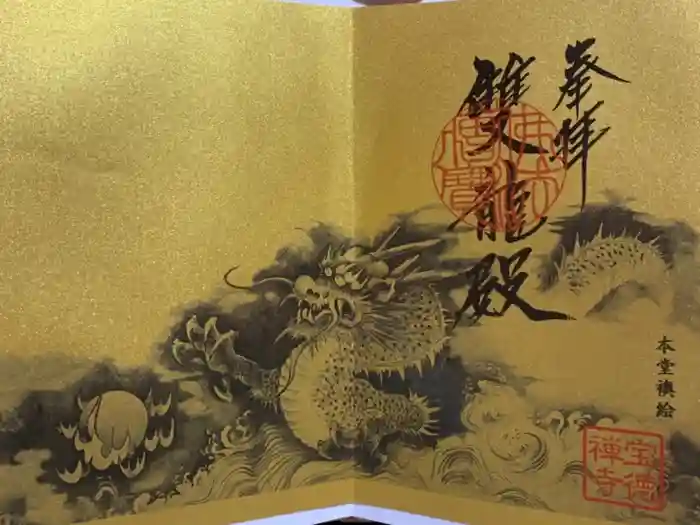 奉拝
雙龍殿
本堂襖絵
宝徳禅寺